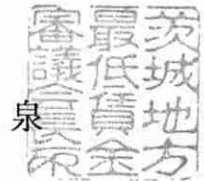 茨城地方
最低賃金
審議會印
泉